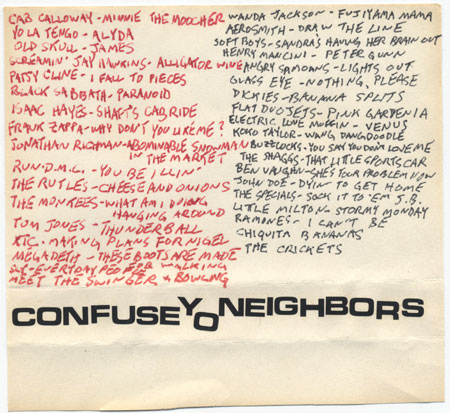 CAB CALLOWAY - MINNIE THE MOOCHER
YO LA TENGO - ALYDA
OLD SKULL - JAMES
SCREAMIN' JAY HAWKINS - ALLIGATOR WINE
PATSY CLINE - I FALL TO PIECES
BLACK SABBATH - PARANOID
ISAAC HAYES - SHAFT'S CAB RIDE
FRANK ZAPPA - WHY DON'T YOU LIKE ME?
JONATHAN RICHMAN - ABOMINABLE SNOWMAN
IN THE MARKET
RUN-D.M.C. - YOU BE ILLIN'
THE RUTLES - CHEESE AND ONIONS
THE MONKEES - WHAT AM I DOING
HANGING AROUND
TOM JONES - THUNDERBALL
XTC - MAKING PLANS FOR NIGEL
MEGADETH - THESE BOOTS ARE MADE
WALKING
SLY - EVERYDAY PEOPLE
MEET THE SWINGER BOWLING
WANDA JACKSON - FUJIYAMA MAMA
AEROSMITH - DRAW THE LINE
SOFT BOYS - SANDRA'S HAVING HER BRAIN OUT
HENRY MANCINI - PETER GUNN
ANGRY SAMOANS - LIGHTS OUT
GLASS EYE - NOTHING, PLEASE
DICKIES - BANANA SPLITS
FLAT DUO JETS - PINK GARDENIA
ELECTRIC LOVE MUFFIN - VENUS
KOKO TAYLOR - WANG DANG DOODLE
BUZZCOCKS - YOU SAY YOU DON'T LOVE ME
THE SHAGGS - THAT LITTLE SPORTS CAR
BEN VAUGHN - SHE'S YOUR PROBLEM NOW
JOHN DOE - DYIN' TO GET HOME
THE SPECIALS - SOCK IT TO 'EM J.B.
LITTLE MILTON - STORMY MONDAY
RAMONES - I CAN'T BE
CHIQUITA BANANAS
THE CRICKETS
CONFUSE YO NEIGHBORS